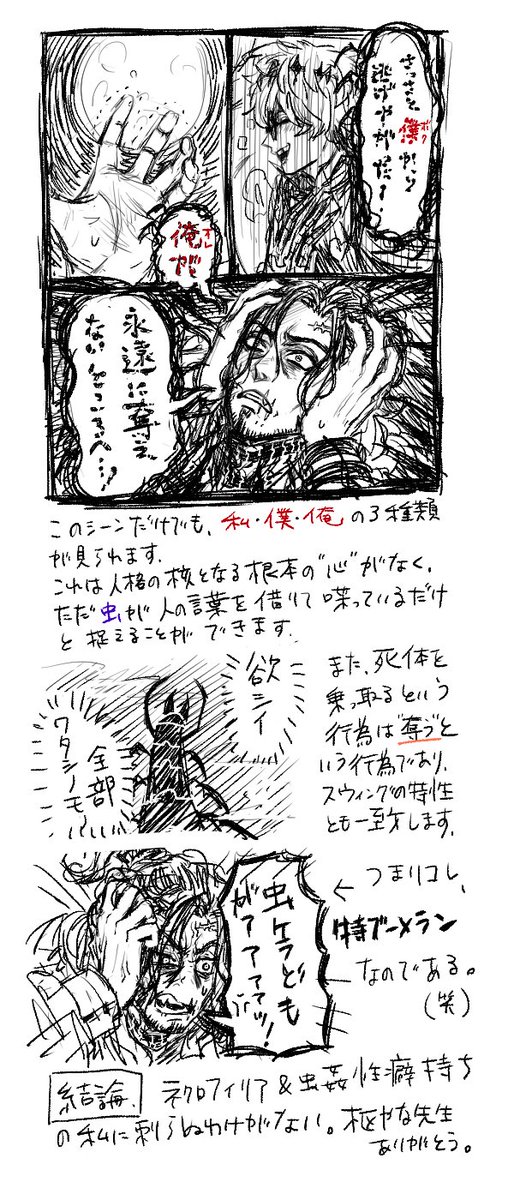 さっさと僕から
ボク
逃げやがった!
俺が
オレ
永遠に奪え
ない
このシーンだけでも、私・僕・俺の3種類
が見られます。
これは人格の核となる根本の"心"がなく、
ただ虫が人の言葉を借りて喋っているだけ
と捉えることができます。
欲シイ
全部
ワタシノモノ
また、死体を
乗っ取るという
行為は"奪う"と
いう行為であり、
スウィングの特性
とも一致します。
虫ケラども
がアアアアッ!
← つまりコレ、
特ブーメラン
なのである。
(笑)
結論、ネクロフィリア&虫姦性癖持ち
の私に刺らぬわけがない。枢やな先生
ありがとう。